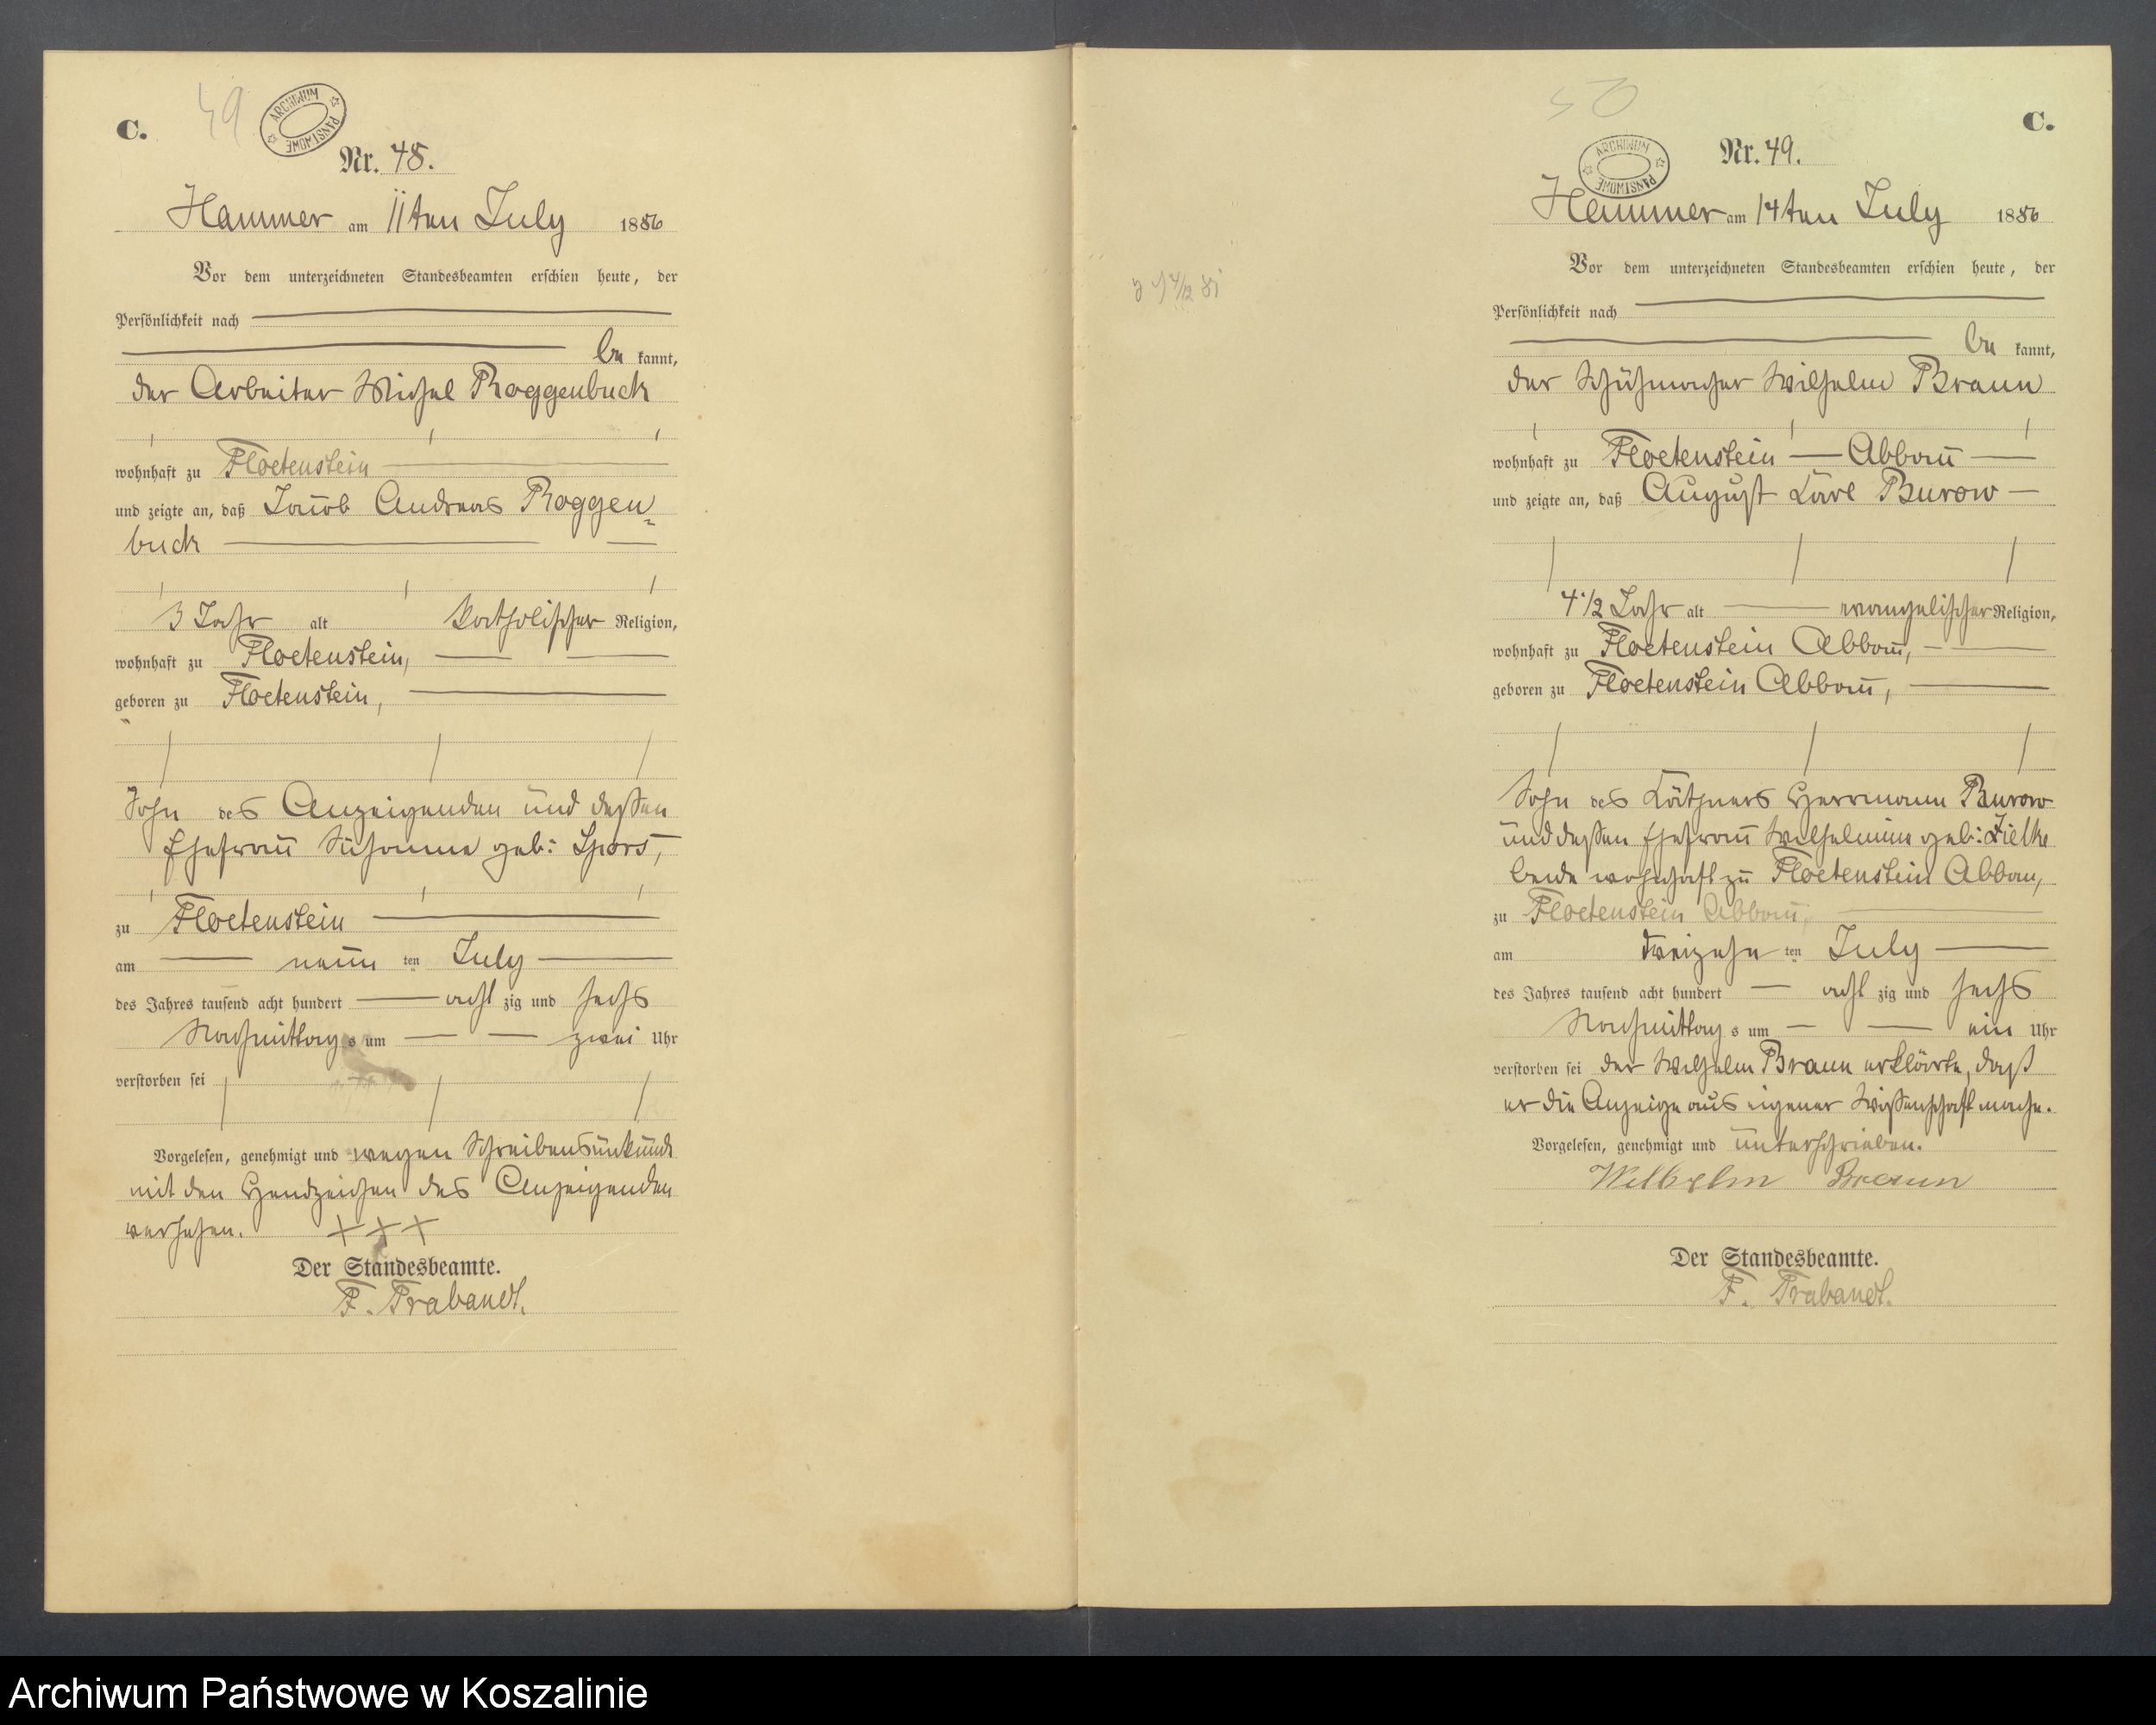 C.
49
ARCHIWUM PAŃSTWOWE
Nr. 48.
Hammer am 11ten July 1886
Vor dem unterzeichneten Standesbeamten erschien heute, der
Persönlichkeit nach
be kannt,
der Arbeiter Michael Roggenbuck
wohnhaft zu Floetenstein
und zeigte an, daß Jacob Andreas Roggen=
buck
3 Jahr alt katholischer Religion,
wohnhaft zu Floetenstein,
geboren zu Floetenstein,
Sohn des Anzeigenden und dessen
Ehefrau Susanna geb: Spors,
zu Floetenstein
am neun ten July
des Jahres tausend acht hundert acht zig und sechs
Nachmittag s um zwei Uhr
verstorben sei
Vorgelesen, genehmigt und wegen Schreibensunkunde
mit den Handzeichen des Anzeigenden
versehen. + + +
Der Standesbeamte.
F. Trabandt.
50
C.
ARCHIWUM PAŃSTWOWE
Nr. 49.
Hammer am 14ten July 1886
Vor dem unterzeichneten Standesbeamten erschien heute, der
Persönlichkeit nach
be kannt,
der Schuhmacher Wilhelm Braun
wohnhaft zu Floetenstein Abbau
und zeigte an, daß August Carl Burow
4 1/2 Jahr alt evangelischer Religion,
wohnhaft zu Floetenstein Abbau,
geboren zu Floetenstein Abbau,
Sohn des Käthners Herrmann Burow
und dessen Ehefrau Wilhelmine geb: Zielke
beide wohnhaft zu Floetenstein Abbau,
zu Floetenstein Abbau,
am dreizehn ten July
des Jahres tausend acht hundert acht zig und sechs
Nachmittag s um ein Uhr
verstorben sei der Wilhelm Braun erklärte, daß
er die Anzeige aus eigener Wissenschaft mache.
Vorgelesen, genehmigt und unterschrieben.
Wilhelm Braun
Der Standesbeamte.
F. Trabandt.
Archiwum Państwowe w Koszalinie